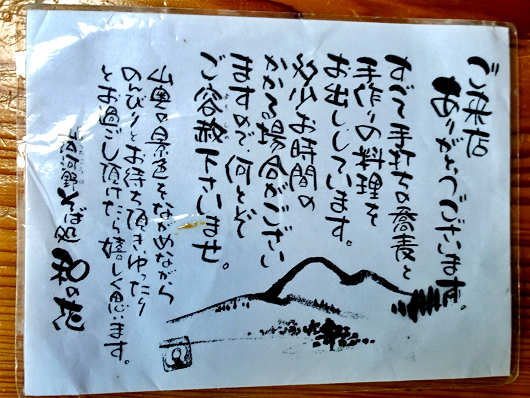 ご来店
ありがとうございます。
すべて手打ちの蕎麦と
手作りの料理を
お出ししています。
多少お時間の
かかる場合がござい
ますので何とぞ
ご容赦下さいませ。
山奥の景色をながめながら
のんびりとお待ち頂きゆったり
とお過ごし頂けたら嬉しく思います。
野そば処